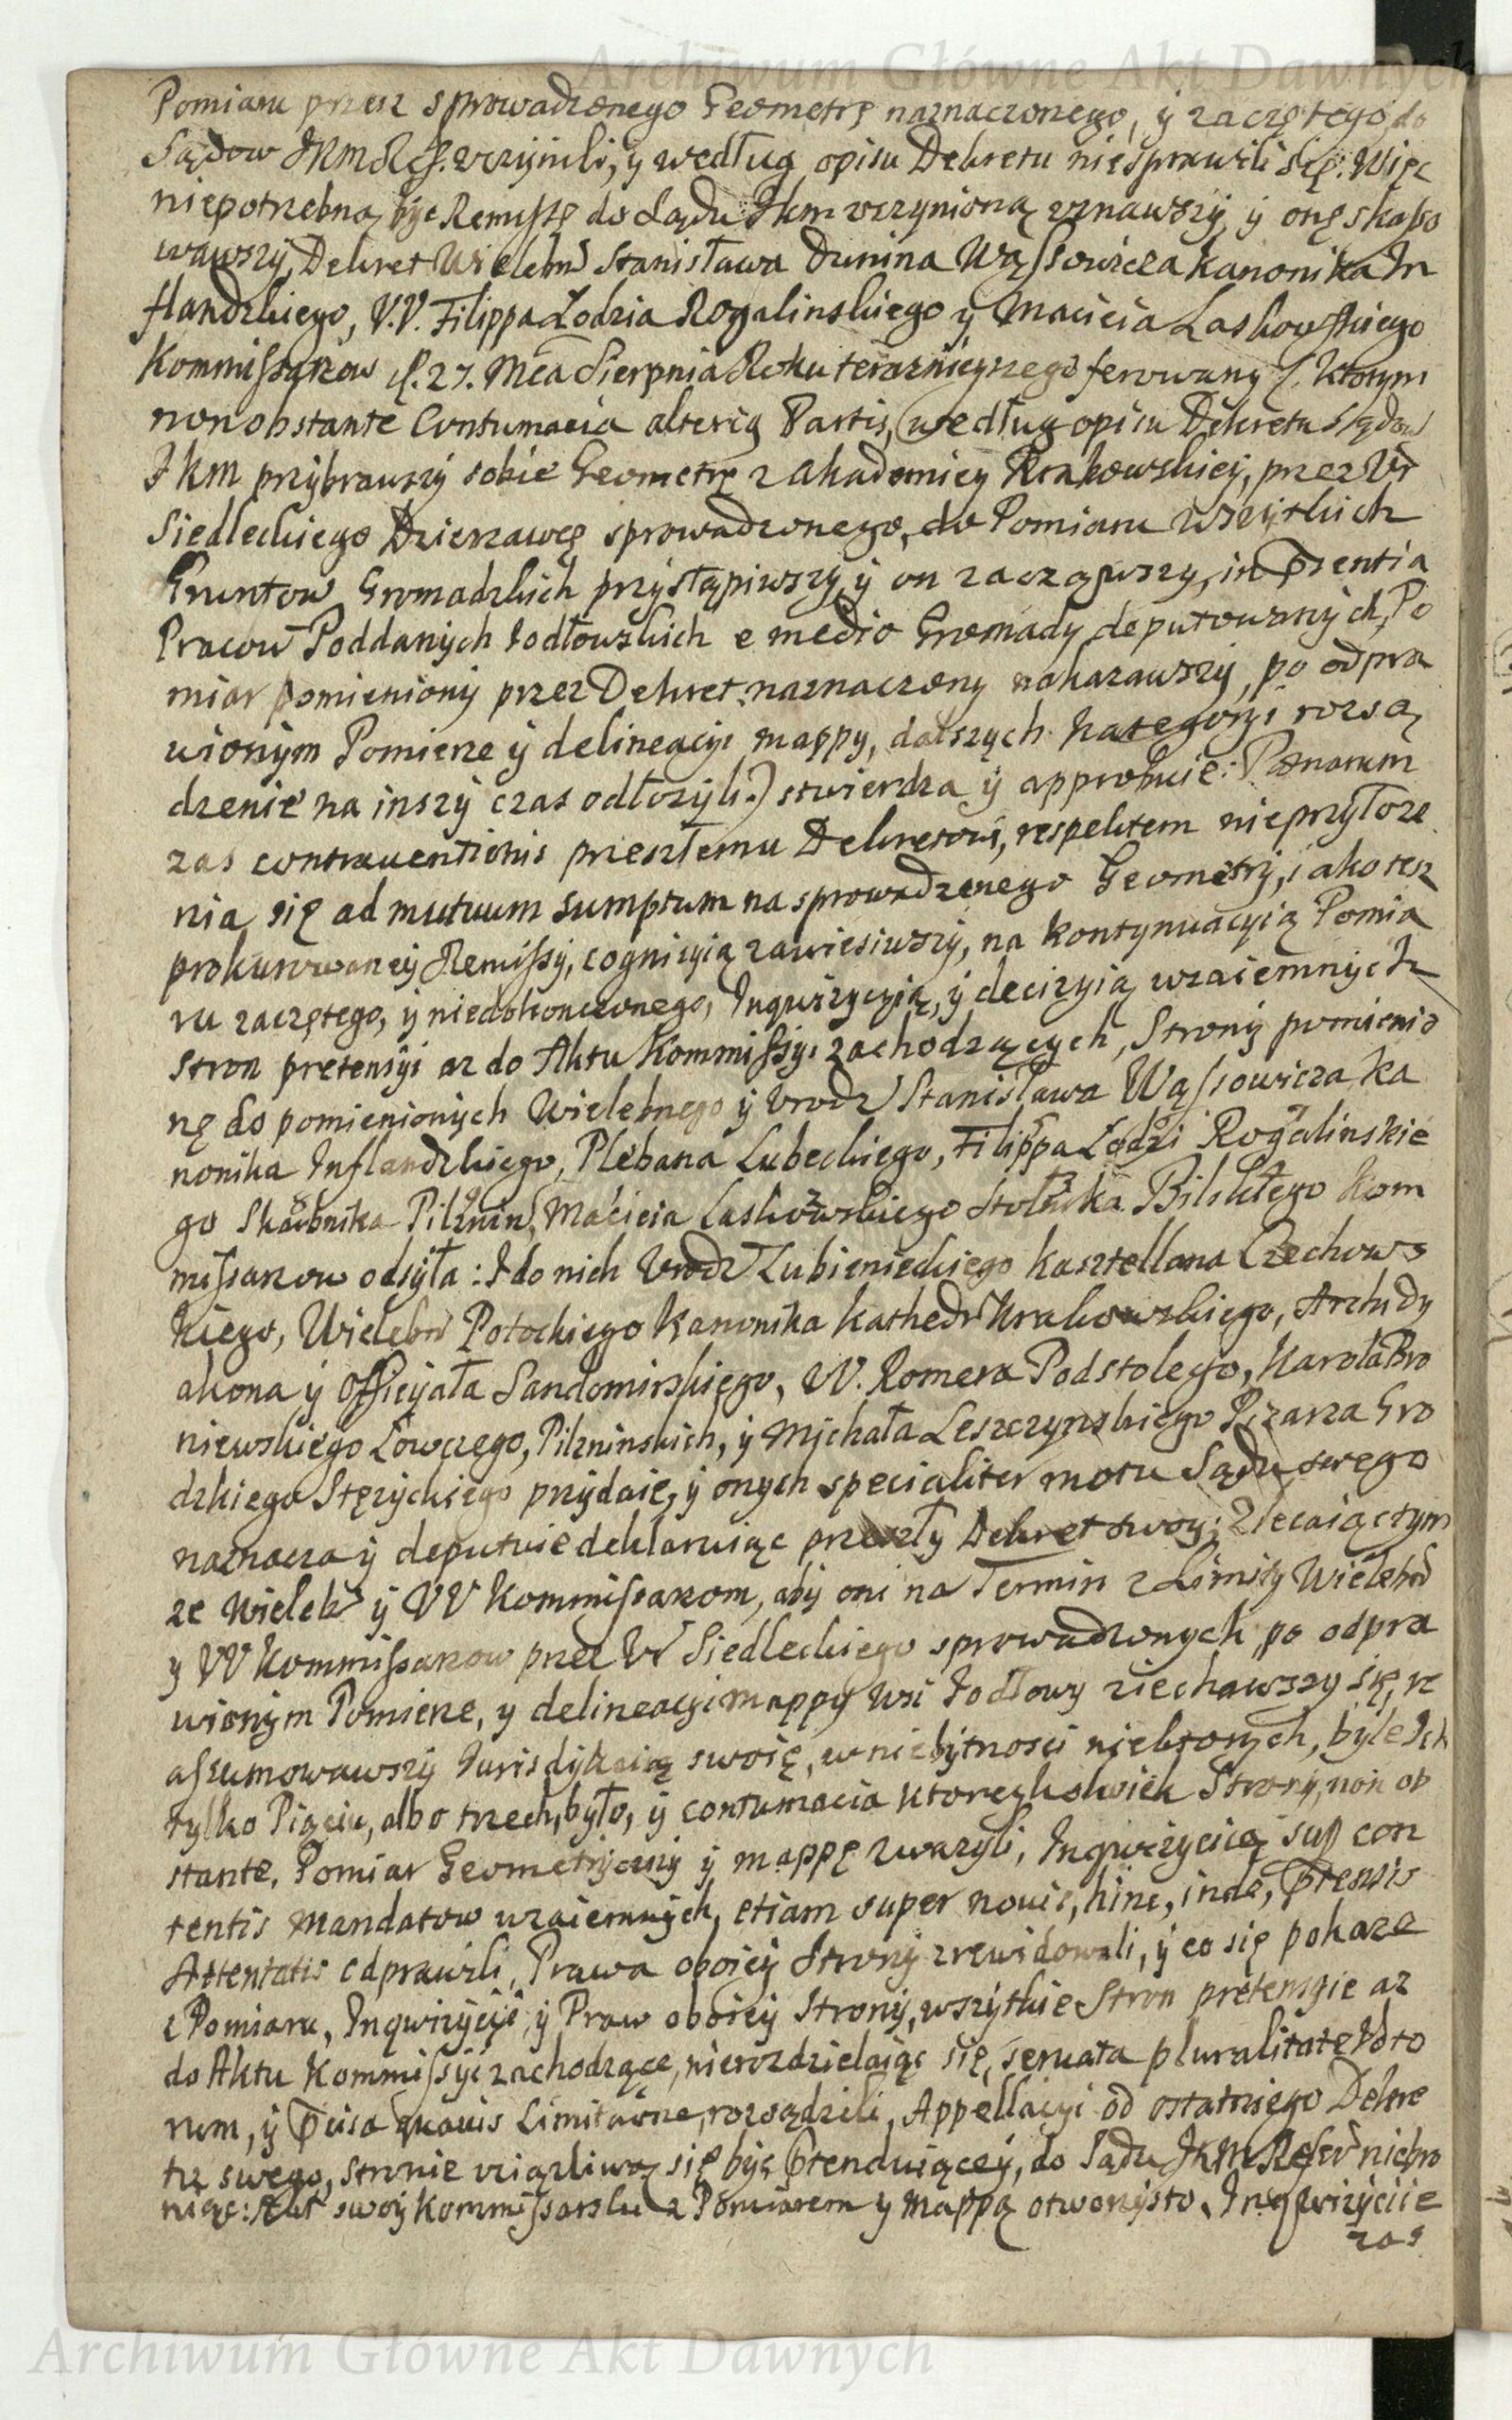 Archiwum Główne Akt Dawnych
Pomiaru przesz sprowadzonego Geometrę naznaczonego, y zaczętego do
Sądow JKM Ref. uczynili, y według opisu Dekretu niesprawili się: Więc
niepotrzebną być Remissę do Sądu Jkm uczynioną uznawszy, y onę skasso
wawszy, Dekret Wielebn Stanisława Dunina Wąssowicza Kanonika In
flandzkiego, V.V. Filippa Łodzia Rogalinskiego y Macieia Laskowskiego
Kommissarzow d. 27. Mca Sierpnia Roku teraznieyszego ferowany /. ktorym
non obstante Contumacia alterius Partis, według opisu Dekretu Sądow
Jkm przybrawszy sobie Geometrę z Akademiey Krakowskiey, przez Ur
Siedleckiego Dzierzawcę sprowadzonego, do Pomiaru wszytkich
Gruntow Gromadzkich przystąpiwszy, y on zacząwszy, in Psentia
Pracow Poddanych Jodłowskich e medio Gromady deputowanych, Po
miar pomieniony przez Dekret naznaczony nakazawszy, po odpra
wionym Pomierze y delineacyi mappy, dalszych kategoryi rozsą
dzenie na inszy czas odłozyli.) stwierdza y approbuie: Pœnarum
zas contraventionis przeszłemu Dekretowi, respektem nieprzyłoze
nia się ad mutuum sumptum na sprowadzenego Geometry, iako tesz
prokurowaney Remissy, cognicyią zawiesiwszy, na kontynuacyią Pomia
ru zaczętego, y niedokonczonego, Inqwizycyią, y decizyią wzaiemnych
stron pretensyi az do Aktu Kommissyi zachodzących, Strony pomienio
nę do pomienionych Wielebnego y Urodz Stanisława Wąssowicza, Ka
nonika Inflandzkiego, Plebana Lubeckiego, Filippa Łodzi Rogalinskie
go Skarbnika Pilznin, Macieia Laskowskiego Stolnika Bilskiego Kom
missarzow odsyła: I do nich Urodz Lubienieckiego Kasztellana Czechows
kiego, Wielebn Potockiego Kanonika Kathedr Krakowskiego, Archidy
akona y Officyała Sandomirskiego, W. Romera Podstolego, Karola Bro
niewskiego Łowczego, Pilzninskich, y Michała Leszczynskiego Pisarza Gro
dzkiego Stęzyckiego przydaie, y onych specialiter motu Sądu swego
naznacza y deputuie deklaruiąc przeszły Dekret swoy; Zlecaiąc tym
ze Wieleb y VV Kommissarzom, aby oni na Termin z Limity Wielebn
y VV Kommissarzow przez Ur Siedleckiego sprowadzonych, po odpra
wionym Pomierze, y delineacyi mappy wsi Jodłowy ziechawszy się, re
assumowawszy Jurisdykcią swoię, w niebytnosci niektorych, byle Ich
tylko Pięciu, albo trzech, było, y contumacia ktoreyzkolwiek Strony, non ob
stante, Pomiar Geometryczny y mappę zwazyli, Inqwizycią sup con
tentis Mandatow wzaiemnych, etiam super novis, hinc, inde, Ptensis
Attentatis odprawili, Prawa oboiey Strony zrewidowali, y co się pokaze
z Pomiaru, Inqwizycyi, y Praw oboiey Strony, wszytkie Stron pretensyie az
do Aktu Kommissyi zachodzące, nierozdzielaiąc się, servata pluralitate Voto
rum, y Pvisa quavis Limitatione, rozsądzili, Appellacyi od ostatniego Dekre
tu swego, stronie uciązliwą się być Ptenduiącey, do Sądu JKM Refer niebro
niąc: Akt swoy Kommissarski z Pomiarem y Mappą otworzysto, Inqwizycyie
zas
Archiwum Główne Akt Dawnych